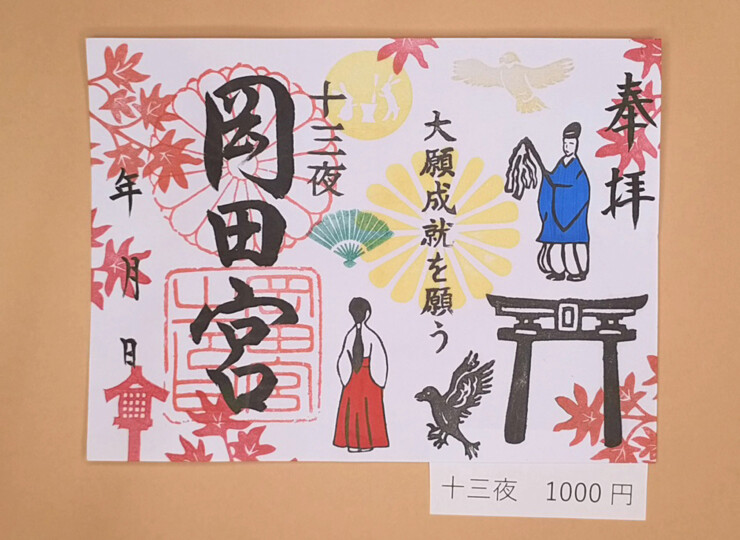 奉拝
大願成就を願う
十三夜
岡田宮
年 月 日
十三夜 1000円